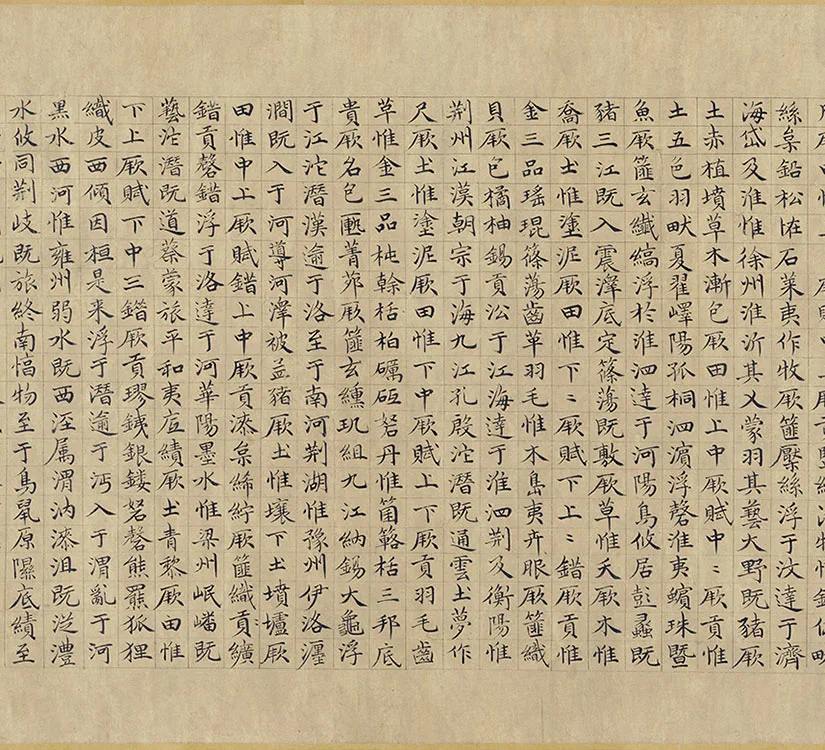 絲枲鉛松恠石萊夷作牧厥篚檿絲浮于汶達于濟
海岱及淮惟徐州淮沂其乂蒙羽其藝大野既豬厥
土赤植墳草木漸包厥田惟上中厥賦中〻厥貢惟
土五色羽畎夏翟嶧陽孤桐泗濱浮磬淮夷蠙珠暨
魚厥篚玄纖縞浮於淮泗達于河陽鳥攸居彭蠡既
豬三江既入震澤底定篠蕩既敷厥草惟夭厥木惟
喬厥土惟塗泥厥田惟下〻厥賦下上〻錯厥貢惟
金三品瑶琨篠蕩齒革羽毛惟木島夷卉服厥篚織
貝厥包橘柚錫貢㳂于江海達于淮泗荆及衡陽惟
荆州江漢朝宗于海九江孔殷沱潛既通雲土夢作
尺厥土惟塗泥厥田惟下中厥賦上下厥貢羽毛齒
草惟金三品杶榦栝柏礪砥砮丹惟箘簵栝三邦底
貴厥名包匭菁茆厥篚玄纁璣組九江納錫大龜浮
于江沱潛漢逾于洛至于南河荆湖惟豫州伊洛瀍
澗既入于河導河澤被孟豬厥土惟壤下土墳壚厥
田惟中上厥賦錯上中厥貢漆枲絺紵厥篚織貢纊
錯貢磬錯浮于洛達于河華陽墨水惟梁州岷嶓既
藝沱潛既道蔡蒙旅平和夷底績厥土青黎厥田惟
下上厥賦下中三錯厥貢璆鐵銀鏤砮磬熊羆狐狸
織皮西傾因桓是来浮于潛逾于沔入于渭亂于河
黒水西河惟雍州弱水既西涇属渭汭漆沮既從灃
水攸同荆岐既旅終南惇物至于鳥鼠原隰底績至